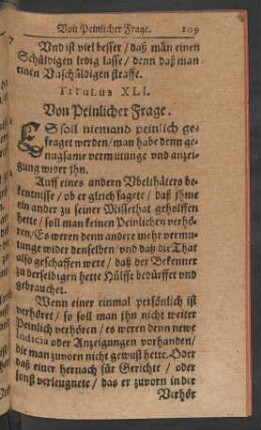 Von Peinlicher Frage. 109
Vnd ist viel besser / daß man einen
Schüldigen ledig lasse / denn daß man
einen Vnschüldigen straffe.
TITULUS XLI.
Von Peinlicher Frage.
ES soll niemand peinlich ge-
fraget werden / man habe denn ge-
nugsame vermutunge vnd anzei-
gung wider jhn.
Auff eines andern Vbelthäters be-
kentnisse / ob er gleich sagete / daß jhme
ein ander zu seiner Missethat geholffen
hette / soll man keinen Peinlichen verhö-
ren / Es weren denn andere mehr vermu-
tunge wider denselben / vnd daß die That
also geschaffen were / daß der Bekenner
zu derselbigen hette Hülffe bedürffet vnd
gebrauchet.
Wenn einer einmal persönlich ist
verhöret / so soll man jhn nicht weiter
Peinlich verhören / es weren denn newe
Indicia oder Anzeigungen vorhanden /
die man zuvorn nicht gewust hette. Oder
daß einer hernach für Gerichte / oder
sonst verleugnete / das er zuvorn in der
Verhör